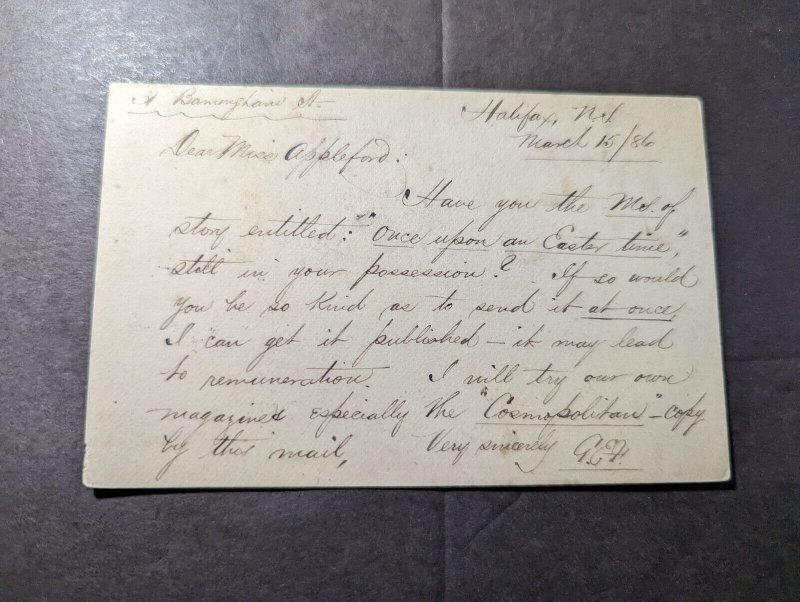 St.
Halifax, N.S.
March 15/86
Dear Miss Appleford:
Have you the Ms. of
story entitled: "Once upon an Easter time",
still in your possession? If so would
you be so kind as to send it at once,
I can get it published – it may lead
to remuneration. I will try our own
magazines especially the "Cosmopolitan" – copy
by this mail, Very sincerely